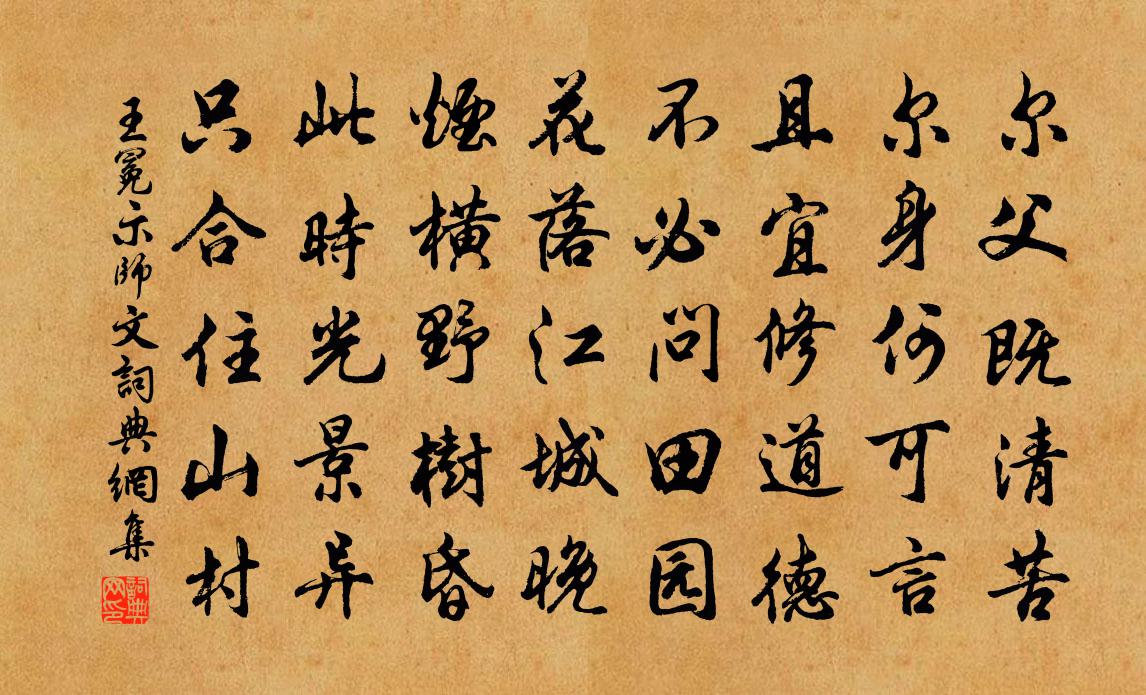 尔父既清苦
尔身何可言
且宜修道德
不必问田园
花落江城晚
煙横野樹昏
此時光景异
只合住山村
王冕示師文詞典網集
詞典
网印